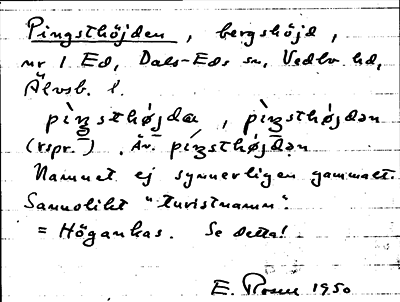 Pingsthöjden, bergshöjd,
nr 1 Ed, Dals-Eds sn, Vedbo hd,
Älvsb. l.
pìŋsthøjda, pìŋsthøjdən
(rspr.) . Äv. píŋsthøjdən
Namnet ej synnerligen gammalt.
Sannolikt "turistnamn".
= Högankas. Se detta!
E. 1950